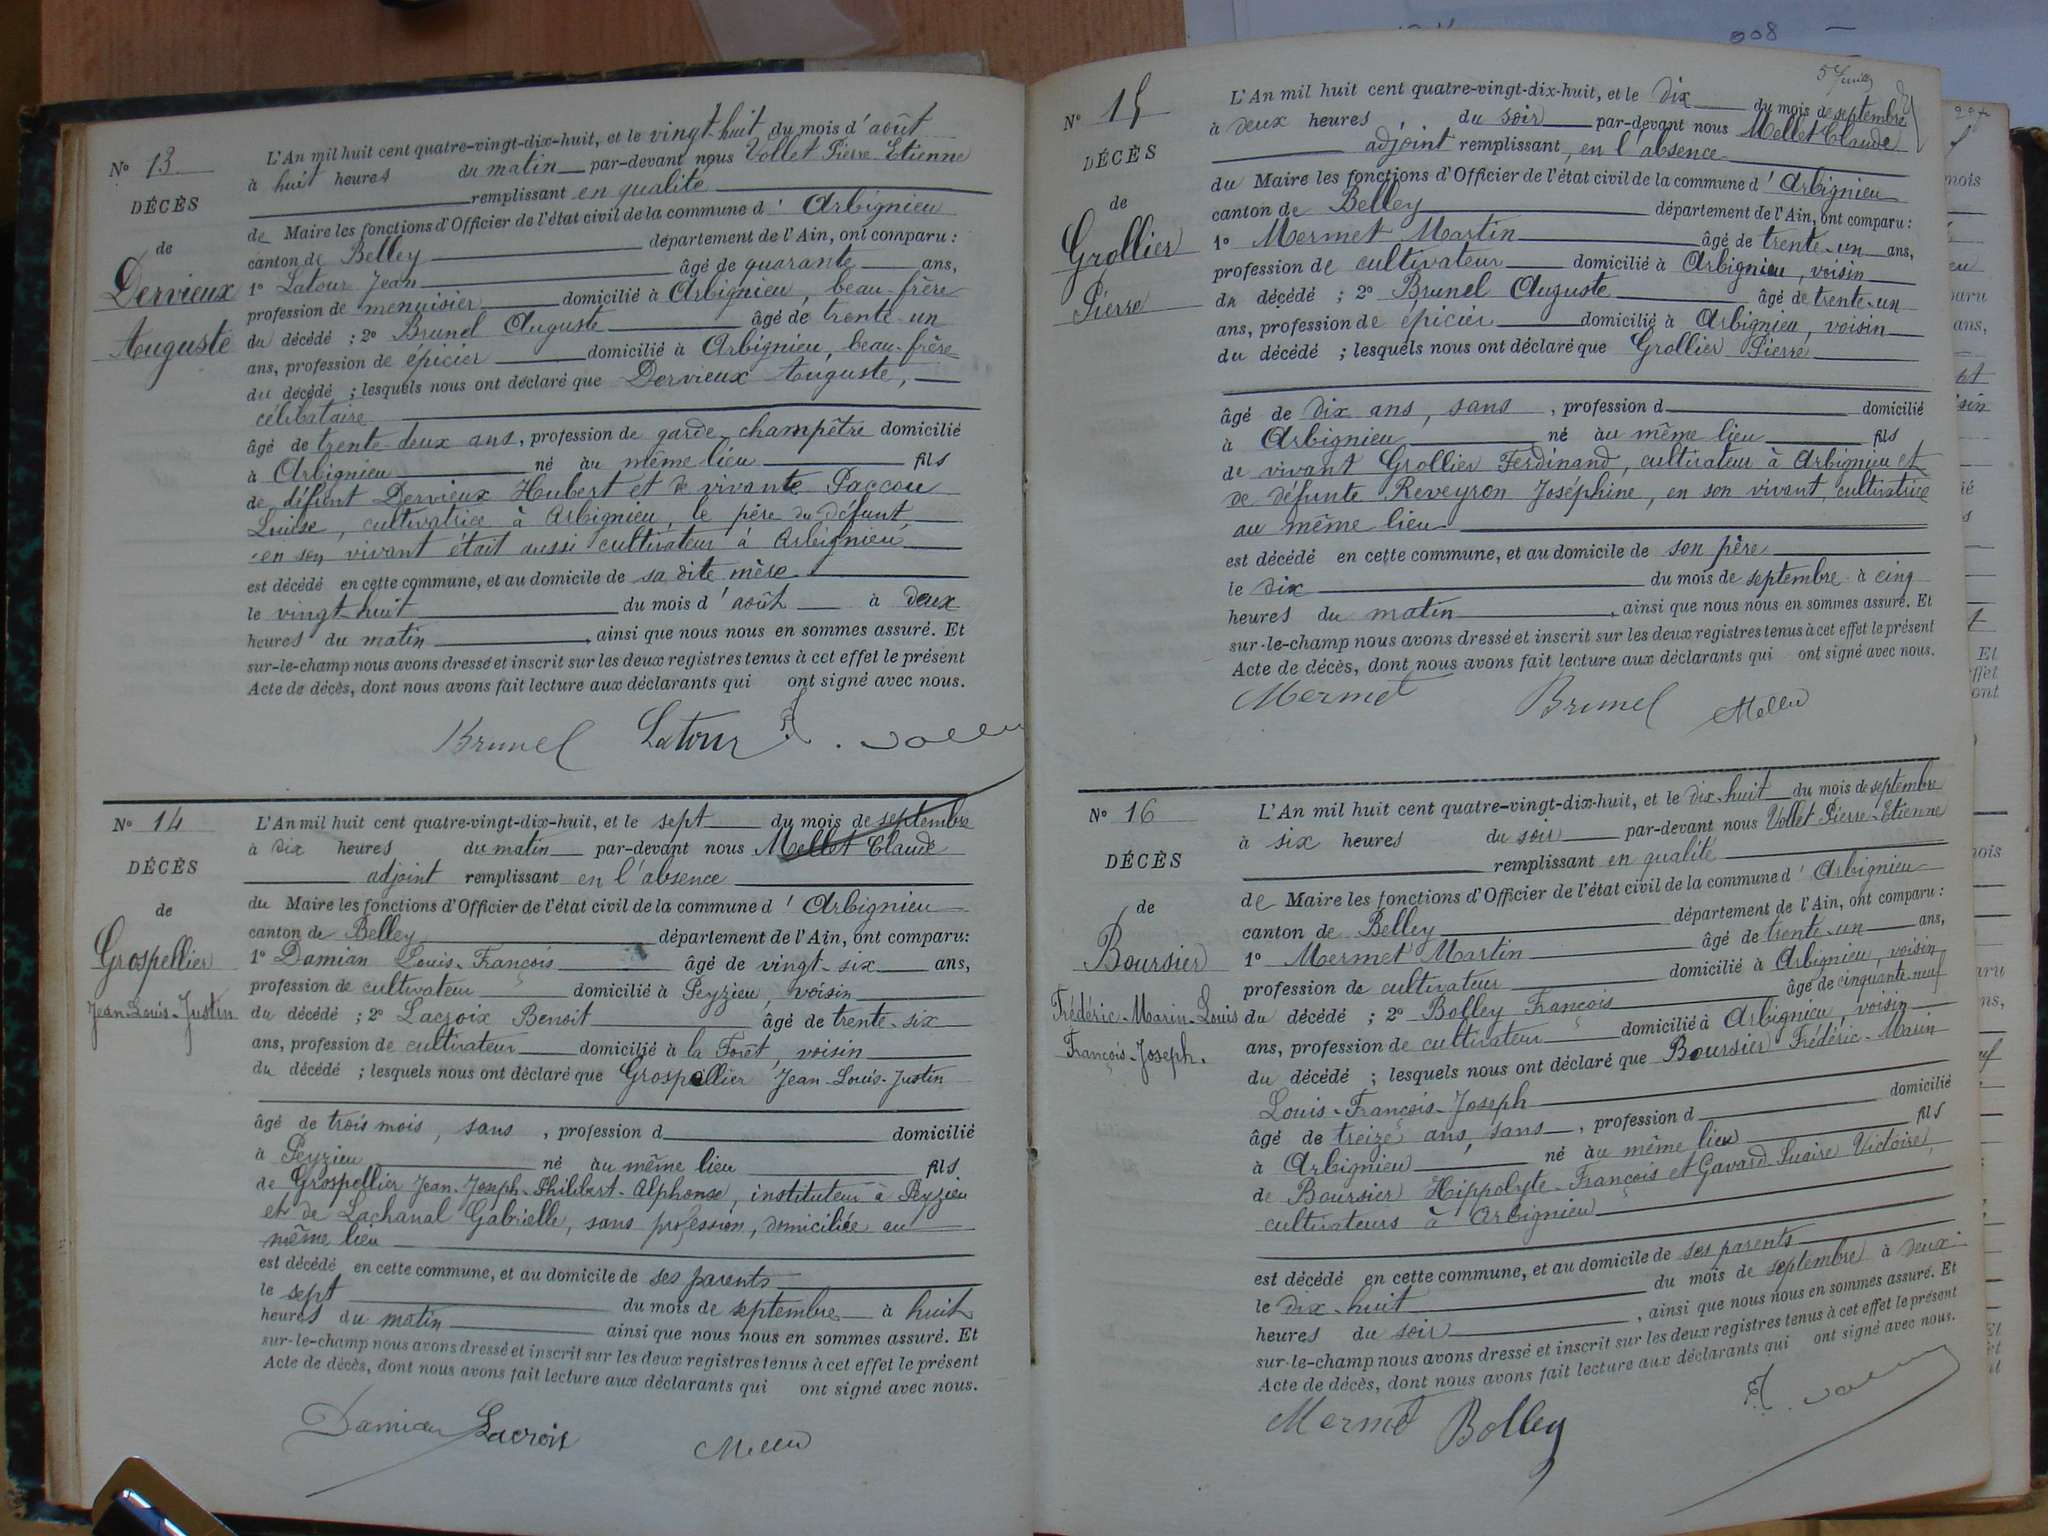 N° 13
DÉCÈS
de
Dervieux
Auguste
L'An mil huit cent quatre-vingt-dix-huit, et le vingt-huit du mois d'août
à huit heures du matin par-devant nous Vollet Pierre-Etienne
remplissant en qualité
de Maire les fonctions d'Officier de l'état civil de la commune d'Arbignieu
canton de Belley département de l'Ain, ont comparu :
1° Latour Jean âgé de quarante ans,
profession de menuisier domicilié à Arbignieu, beau-frère
du décédé ; 2° Brunel Auguste âgé de trente-un
ans, profession de épicier domicilié à Arbignieu, beau-frère
du décédé ; lesquels nous ont déclaré que Dervieux Auguste,
célibataire
âgé de trente-deux ans, profession de garde champêtre domicilié
à Arbignieu né au même lieu fils
de défunt Dervieux Hubert et de vivante Paccou
Louise, cultivatrice à Arbignieu, le père du défunt,
en son vivant était aussi cultivateur à Arbignieu
est décédé en cette commune, et au domicile de sa dite mère
le vingt-huit du mois d'août à deux
heures du matin, ainsi que nous nous en sommes assuré. Et
sur-le-champ nous avons dressé et inscrit sur les deux registres tenus à cet effet le présent
Acte de décès, dont nous avons fait lecture aux déclarants qui ont signé avec nous.
Brunel Latour
N° 14
DÉCÈS
de
Grospellier
Jean-Louis-Justin
L'An mil huit cent quatre-vingt-dix-huit, et le sept du mois de septembre
à dix heures du matin par-devant nous Mellet Claude
adjoint remplissant en l'absence
du Maire les fonctions d'Officier de l'état civil de la commune d'Arbignieu
canton de Belley département de l'Ain, ont comparu :
1° Damian Louis-François âgé de vingt-six ans,
profession de cultivateur domicilié à Peyzieu, voisin
du décédé ; 2° Lacroix Benoit âgé de trente-six
ans, profession de cultivateur domicilié à la Forêt, voisin
du décédé ; lesquels nous ont déclaré que Grospellier Jean-Louis-Justin
âgé de trois mois, sans, profession d domicilié
à Peyzieu né au même lieu fils
de Grospellier Jean-Joseph-Philibert-Alphonse, instituteur à Peyzieu
et de Lachanal Gabrielle, sans profession, domiciliée au
même lieu
est décédé en cette commune, et au domicile de ses parents
le sept du mois de septembre à huit
heures du matin ainsi que nous nous en sommes assuré. Et
sur-le-champ nous avons dressé et inscrit sur les deux registres tenus à cet effet le présent
Acte de décès, dont nous avons fait lecture aux déclarants qui ont signé avec nous.
Damian Lacroix
N° 15
DÉCÈS
de
Grollier
Pierre
L'An mil huit cent quatre-vingt-dix-huit, et le dix du mois de septembre
à deux heures du soir par-devant nous Mellet Claude
adjoint remplissant, en l'absence
du Maire les fonctions d'Officier de l'état civil de la commune d'Arbignieu
canton de Belley département de l'Ain, ont comparu :
1° Mermet Martin âgé de trente-un ans,
profession de cultivateur domicilié à Arbignieu, voisin
du décédé ; 2° Brunel Auguste âgé de trente-un
ans, profession de épicier domicilié à Arbignieu, voisin
du décédé ; lesquels nous ont déclaré que Grollier Pierre
âgé de dix ans, sans, profession d domicilié
à Arbignieu né au même lieu fils
de vivant Grollier Ferdinand, cultivateur à Arbignieu et
de défunte Reveyron Joséphine, en son vivant cultivatrice
au même lieu
est décédé en cette commune, et au domicile de son père
le dix du mois de septembre à cinq
heures du matin, ainsi que nous nous en sommes assuré. Et
sur-le-champ nous avons dressé et inscrit sur les deux registres tenus à cet effet le présent
Acte de décès, dont nous avons fait lecture aux déclarants qui ont signé avec nous.
Mermet Brunel
N° 16
DÉCÈS
de
Boursier
Frédéric-Marin-Louis
François-Joseph.
L'An mil huit cent quatre-vingt-dix-huit, et le dix-huit du mois de septembre
à six heures du soir par-devant nous Vollet Pierre-Etienne
remplissant en qualité
de Maire les fonctions d'Officier de l'état civil de la commune d'Arbignieu
canton de Belley département de l'Ain, ont comparu :
1° Mermet Martin âgé de trente-un ans,
profession de cultivateur domicilié à Arbignieu, voisin
du décédé ; 2° Bolley François âgé de cinquante-neuf
ans, profession de cultivateur domicilié à Arbignieu, voisin
du décédé ; lesquels nous ont déclaré que Boursier Frédéric-Marin
Louis-François-Joseph
âgé de treize ans, sans, profession d domicilié
à Arbignieu né au même lieu fils
de Boursier Hippolyte-François et Gavard-Suaire Victoire,
cultivateurs à Arbignieu
est décédé en cette commune, et au domicile de ses parents
le dix-huit du mois de septembre à deux
heures du soir, ainsi que nous nous en sommes assuré. Et
sur-le-champ nous avons dressé et inscrit sur les deux registres tenus à cet effet le présent
Acte de décès, dont nous avons fait lecture aux déclarants qui ont signé avec nous.
Mermet Bolley